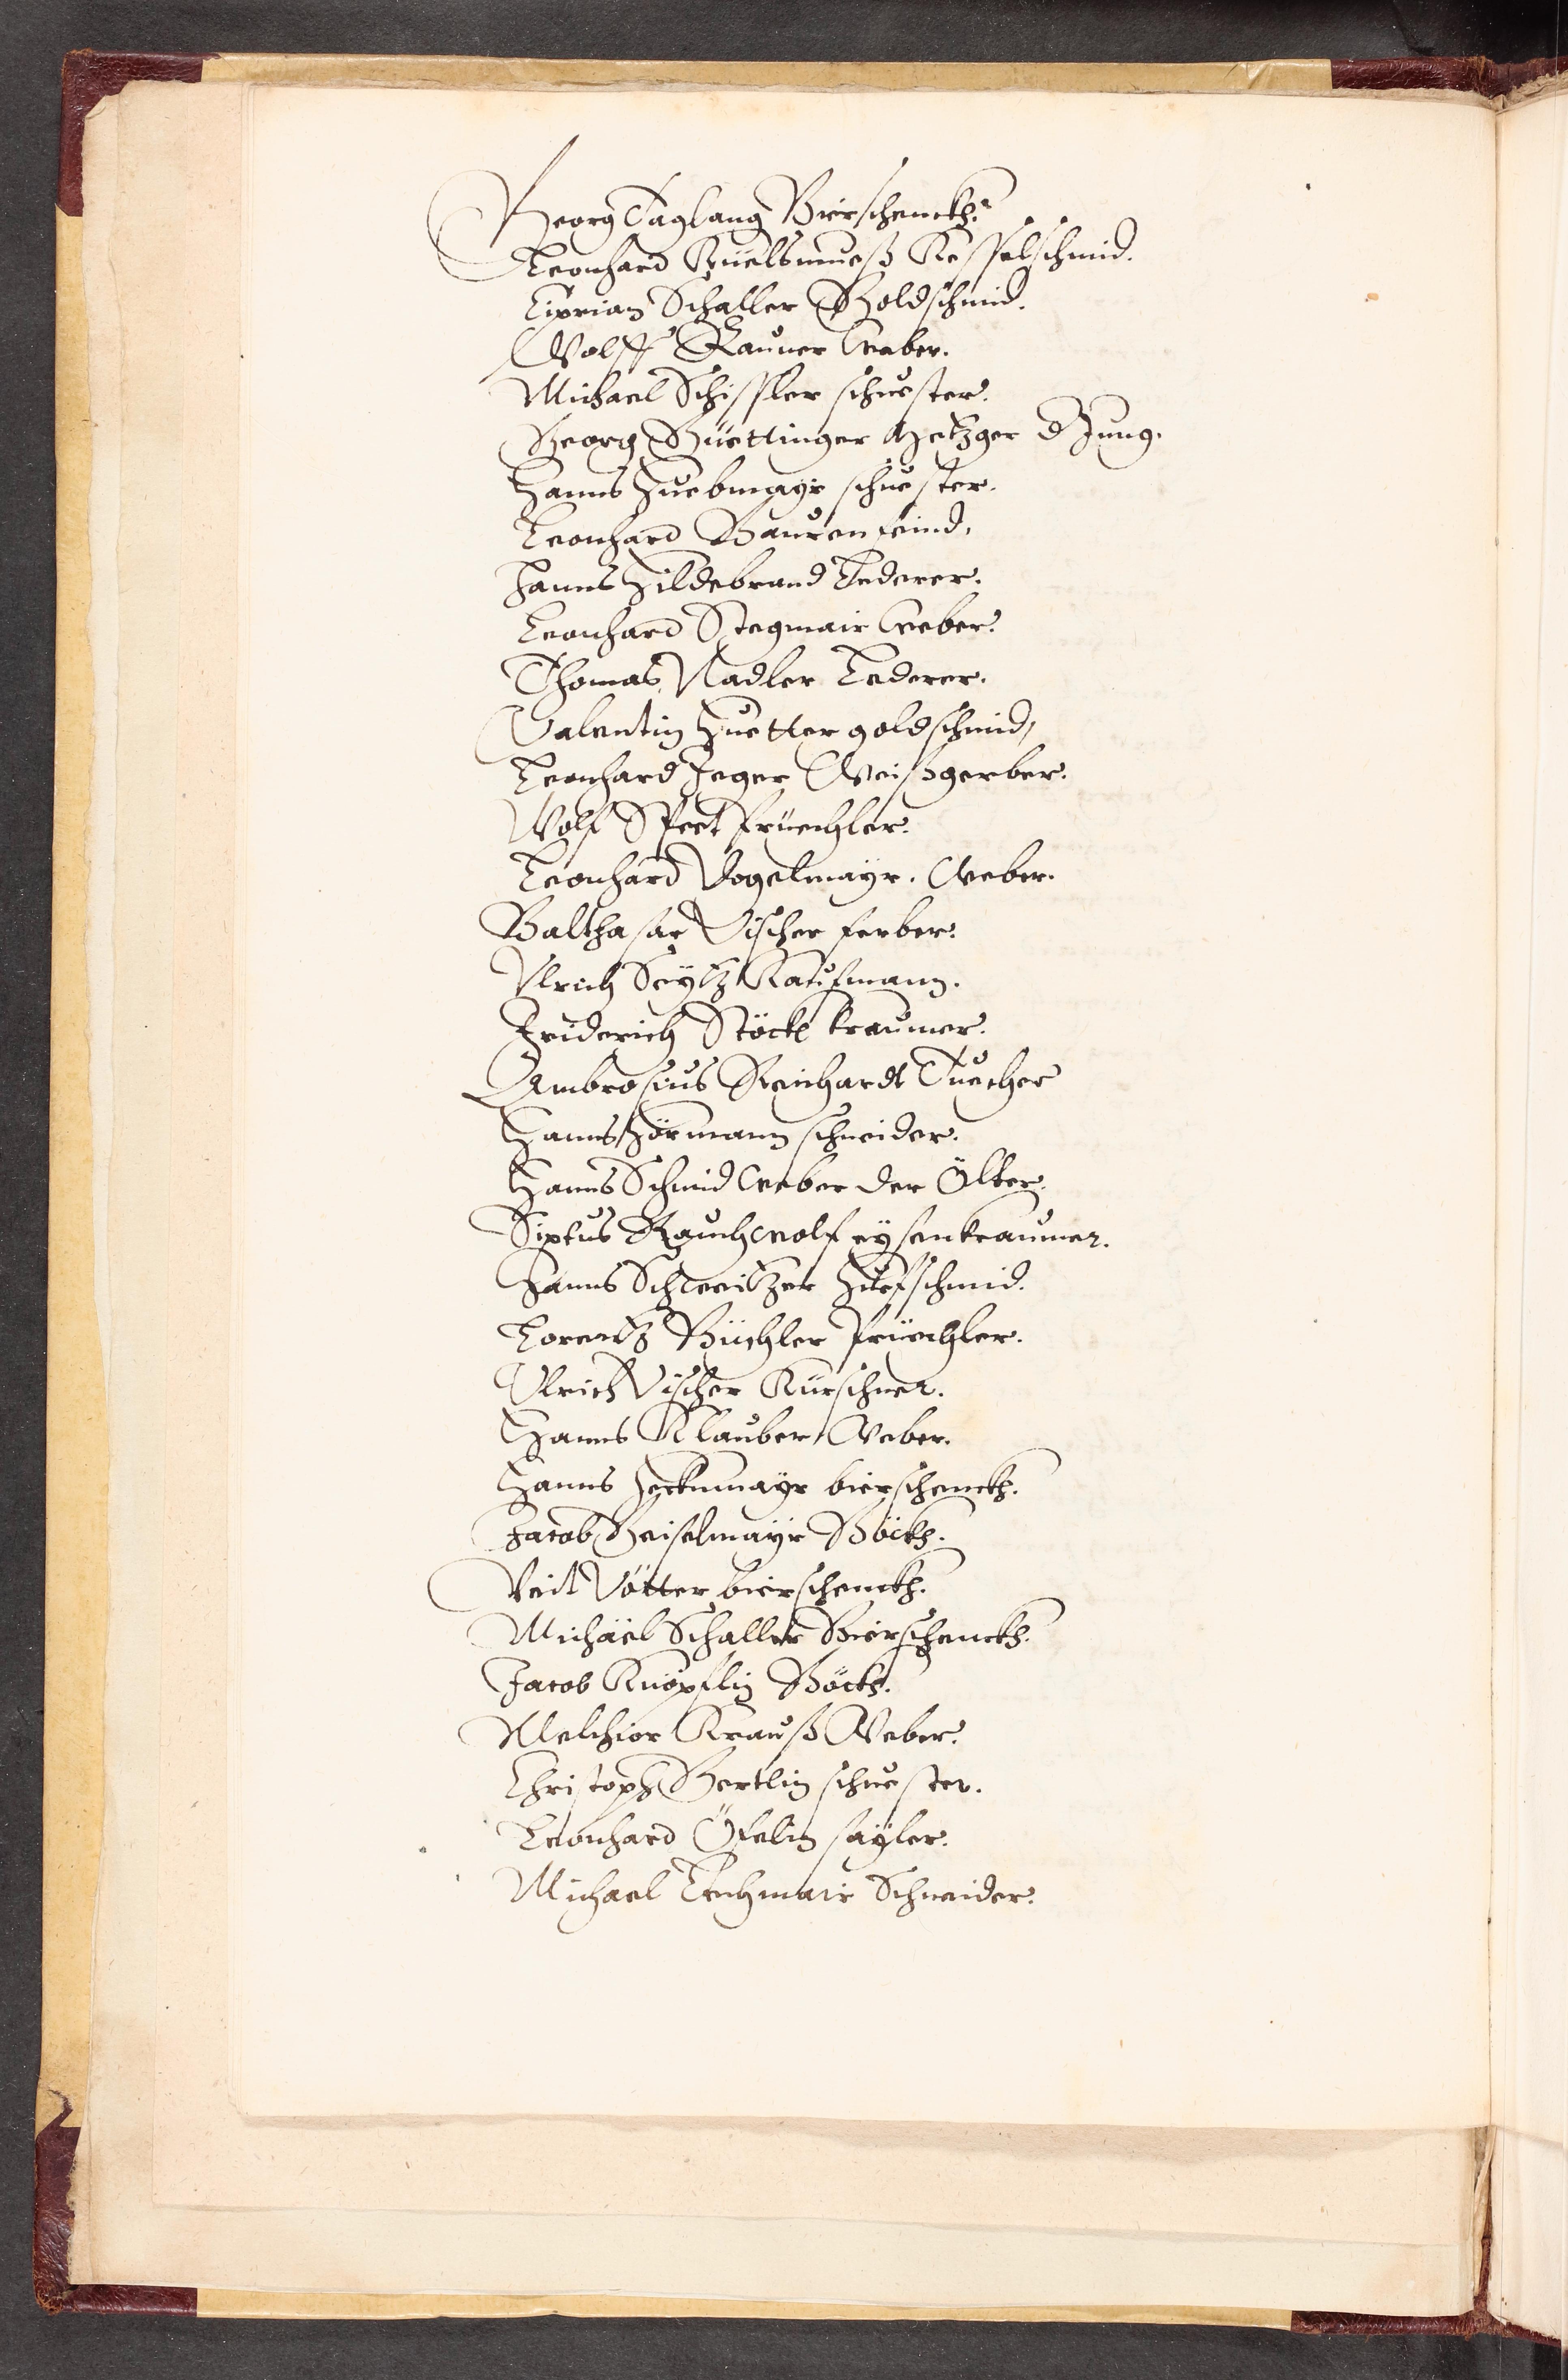 Georg Taglang Bierschenckh.
Leonhard Kesselschmid.
Ciprian Schaller Goldschmid.
Wolff Rauner Weber.
Michael Schissler schuester.
Georg Güettinger Metzger d Jung.
Hanns Huebmayr schuester.
Leonhard Baurenfeind,
Hanns Hildebrand Lederer.
Leonhard Stegmair Weber.
Thomas Nadler Lederer.
Valentin Huetter goldschmid,
Leonhard Jeger Weißgerber.
Wolf Spect
Leonhard Vogelmayr. Weber.
Balthasar Vischer ferber.
Ulrich Seytz Kaufmann.
Friderich Stöckl kraumer.
Ambrosius Reichardt Tuecher
Hanns Hörmann schneider.
Hanns Schmid Weber der Ölter.
Sixtus Rauchwolf eysenkraumer.
Hanns Schweitzer Huefschmid.
Lorentz Büchler
Ulrich Vischer Kürschner.
Hanns Klauber Weber.
Hanns Heckmayr bierschenckh.
Jacob Geiselmayr Böckh.
Veit Vötter bierschenckh.
Michael Schaller Bierschenckh.
Jacob Knöpflin Böckh.
Melchior Krauß Weber.
Christoph Bertlin schuester.
Leonhard Öfelin sayler.
Michael Lechmair Schneider.